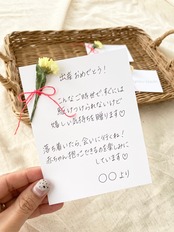 出産おめでとう！
こんなご時世ですぐには
駆けつけられないけど
嬉しい気持ちを贈ります♡
落ち着いたら、会いに行くね！
赤ちゃん抱っこできるのを楽しみに
しています♡
〇〇より